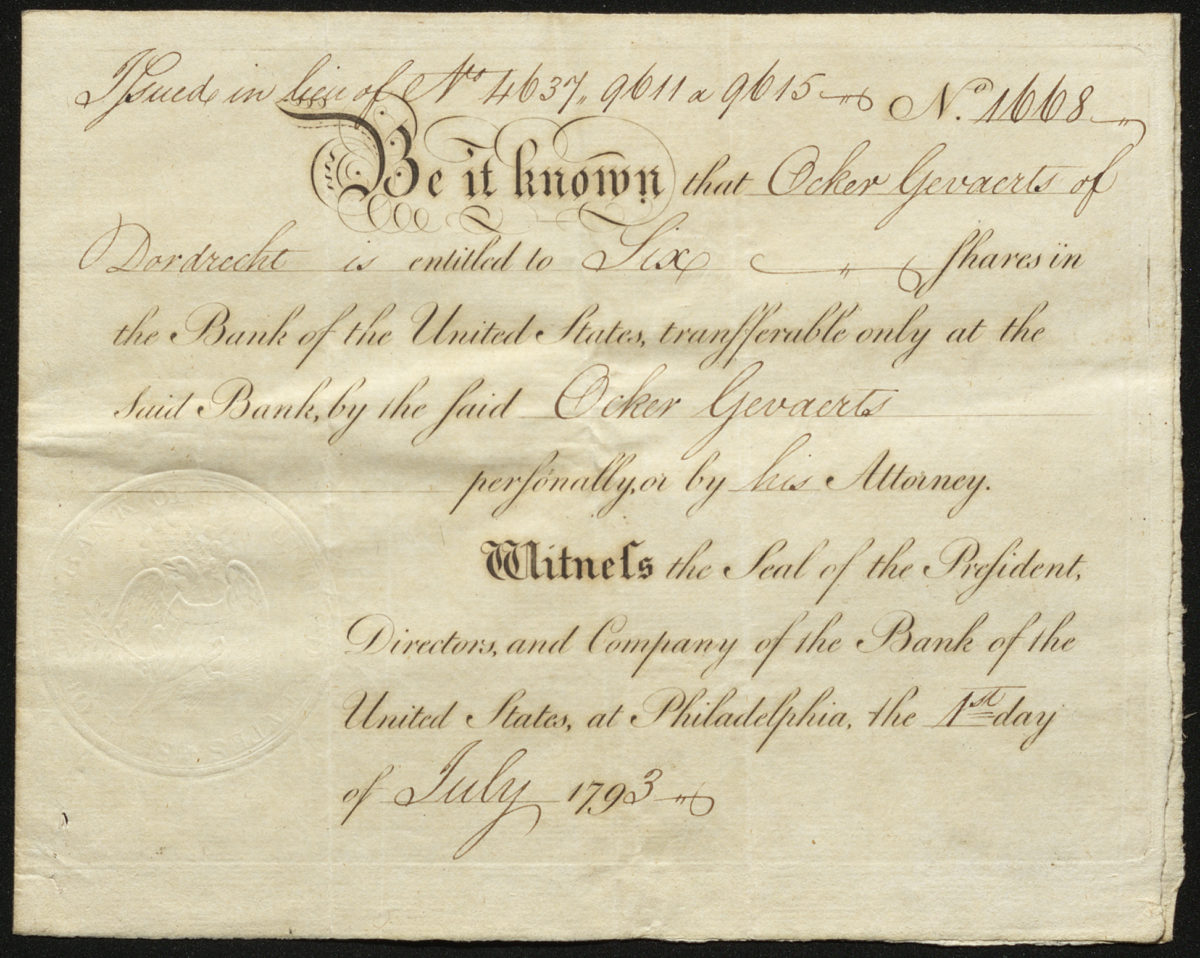 Issued in lieu of Nos 4637,, 9611 a 9615 No. 1668
Be it known that Ocker Gevaerts of
Dordrecht is entitled to Six ſhares in
the Bank of the United States, tranſferable only at the
said Bank, by the ſaid Ocker Gevaerts
perſonally, or by his Attorney.
Witneſs the Seal of the Preſident,
Directors, and Company of the Bank of the
United States, at Philadelphia, the 1st day
of July 1793